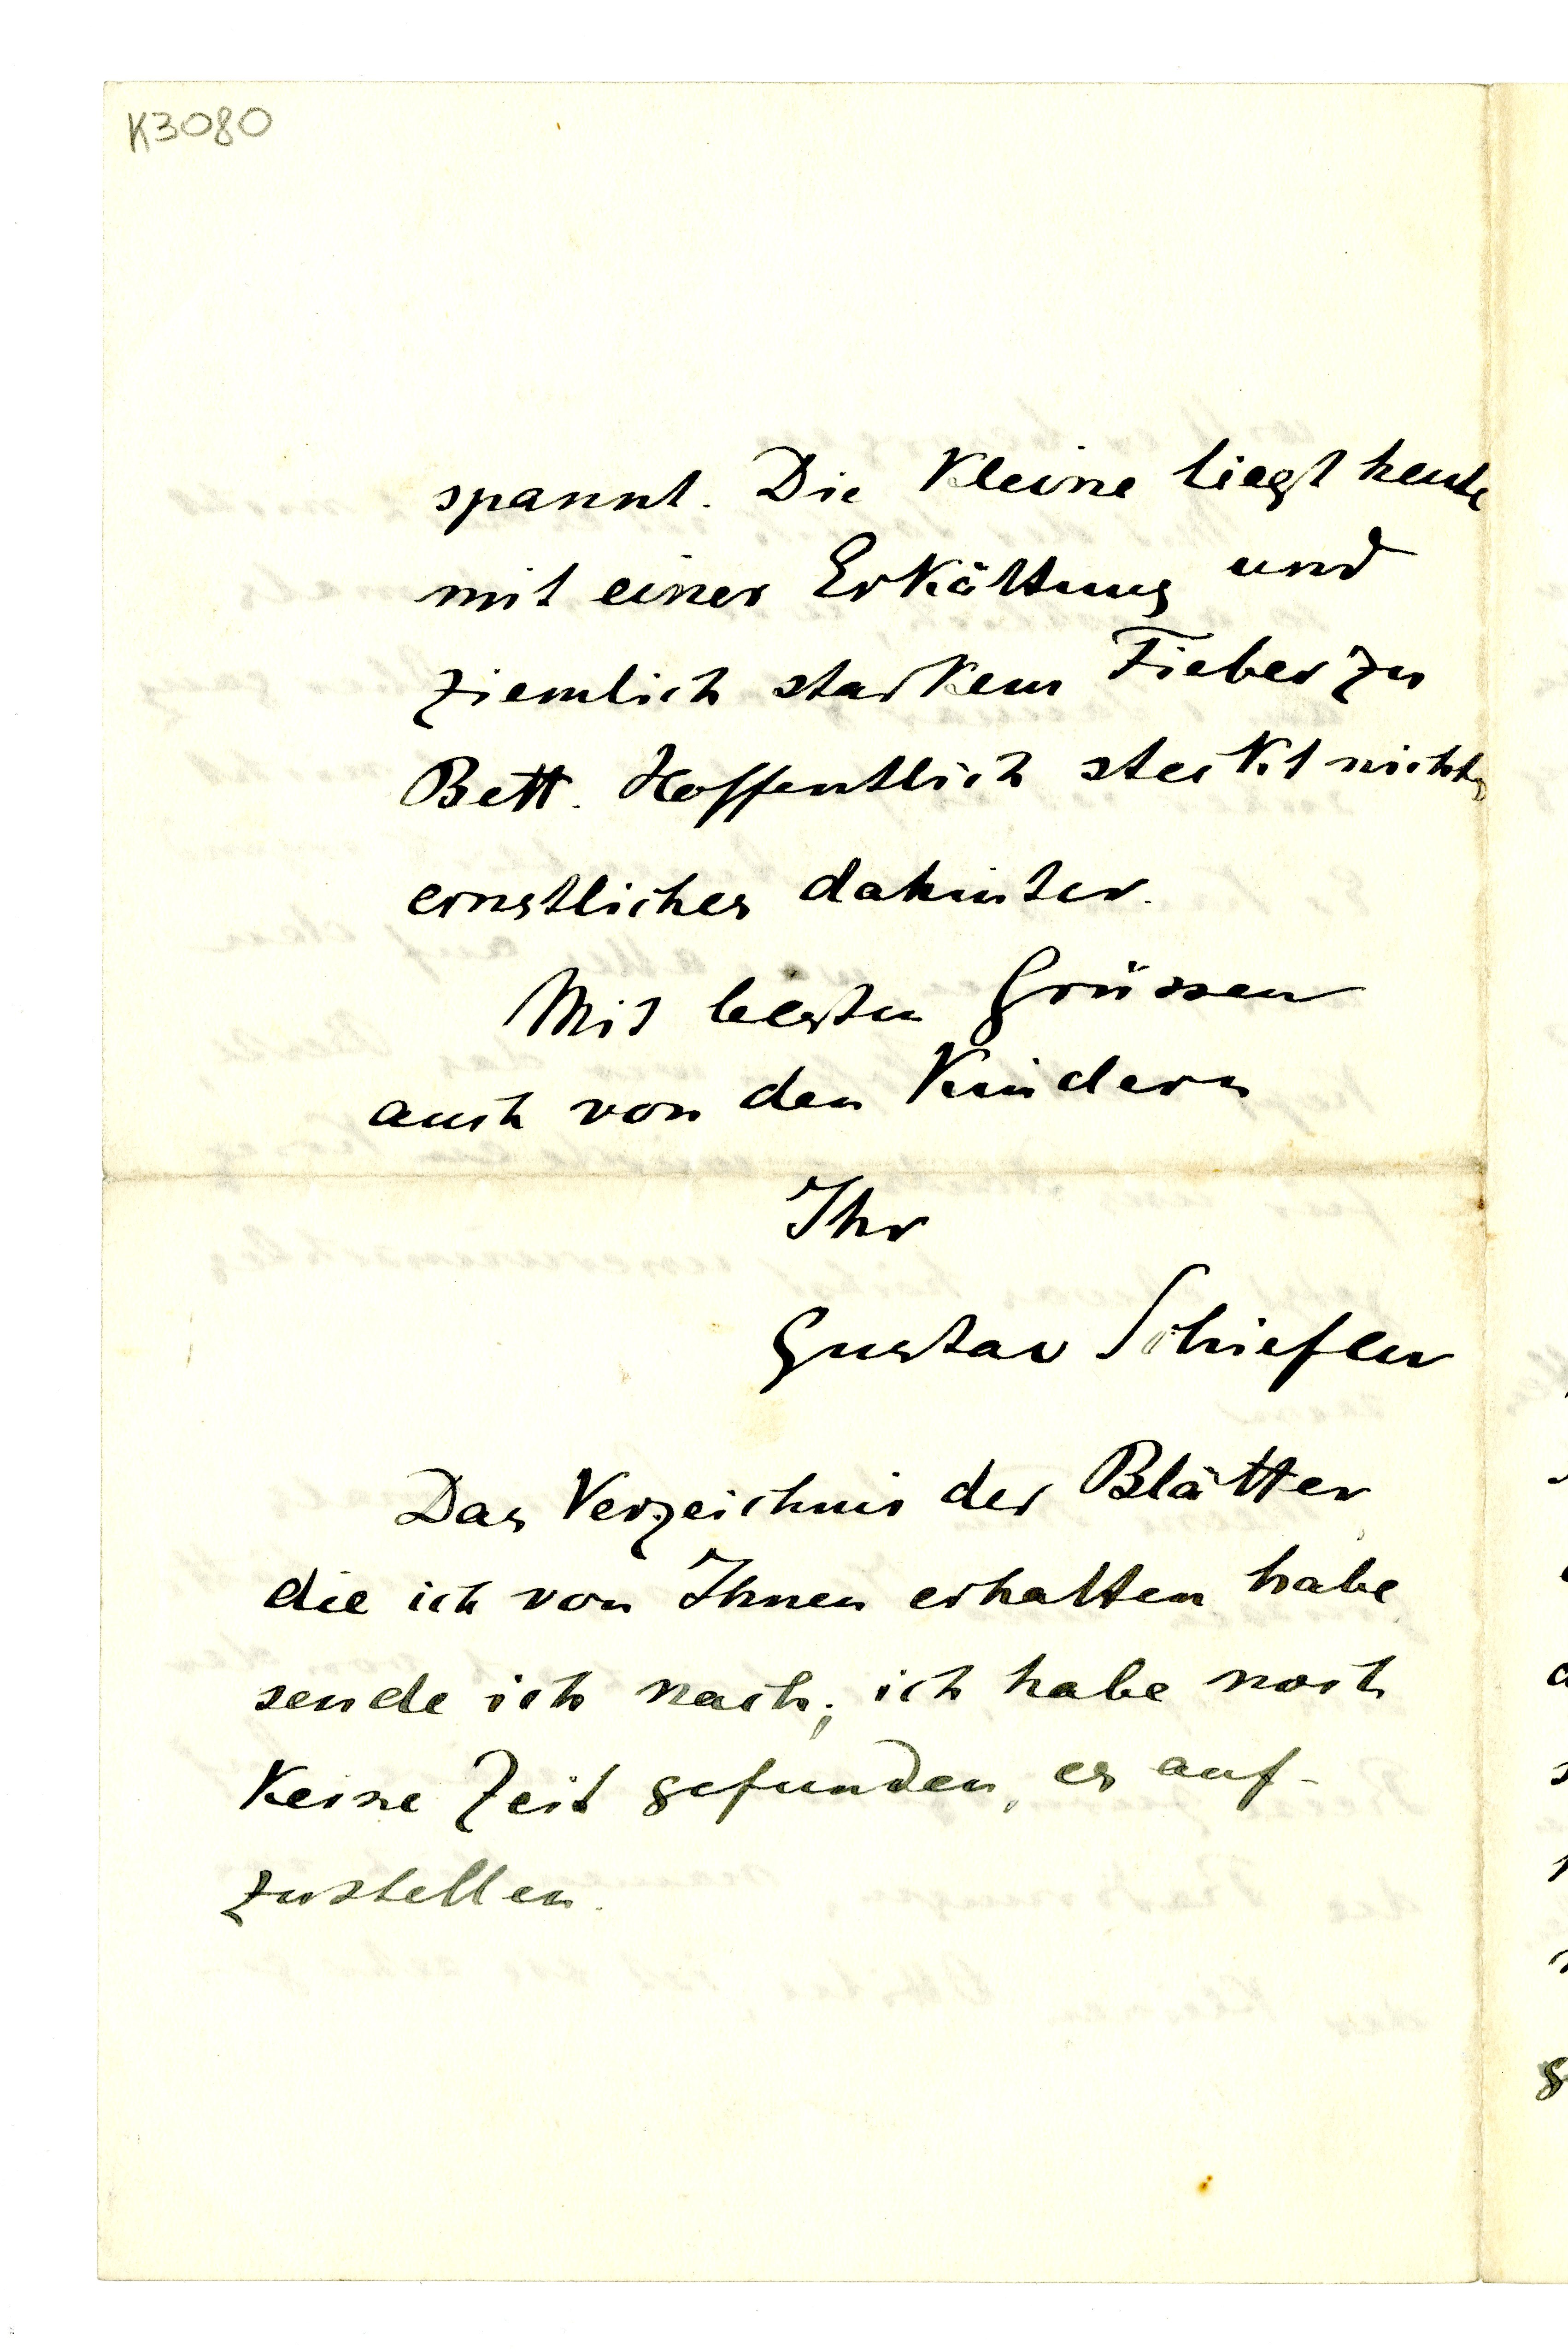 K3080
spannt. Die Kleine liegt heute
mit einer Erkältung und
ziemlich starkem Fieber zu
Bett. Hoffentlich steckt nichts
ernstliches dahinter.
Mit besten Grüssen
auch von den Kindern
Ihr
Gustav Schiefler
Das Verzeichnis der Blätter
die ich von Ihnen erhalten habe
sende ich nach; ich habe noch
keine Zeit gefunden, es auf-
zustellen.